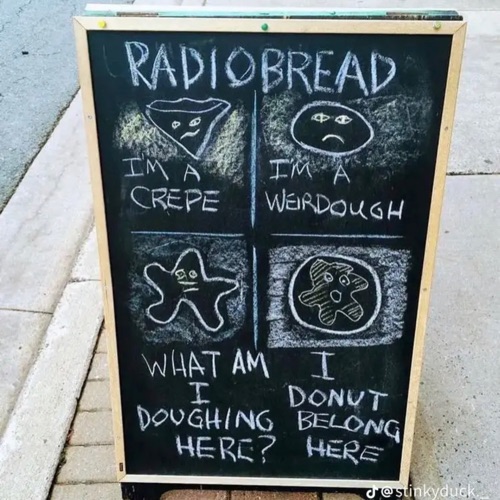 RADIOBREAD
IM A
CREPE
IM A
WEIRDOUGH
WHAT AM
I
DOUGHING
HERE?
I
DONUT
BELONG
HERE
@stinkyduck